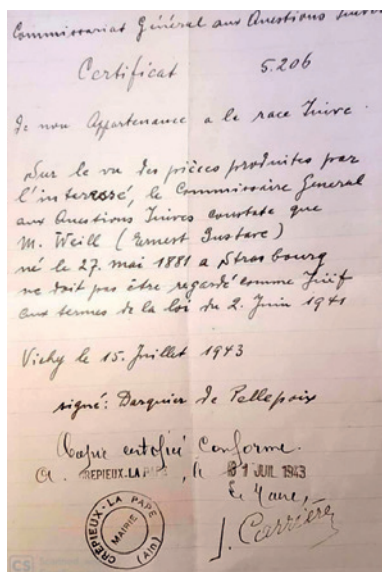 Commissariat Général aux Questions Juives
Certificat 5.206
de non Appartenance a la race Juive.
Sur le vu des pièces produites par
l'interessé, le Commissaire General
aux Questions Juives constate que
M. Weill (Ernest Gustave)
né le 27. mai 1881 a Strasbourg
ne doit pas être regardé comme Juif
aux termes de la loi du 2. Juin 1941
Vichy le 15. Juillet 1943
signé: Darquier de Pellepoix
Copie certifié conforme.
a. CREPIEUX.LA PAPE, le 31 JUIL 1943
Le Maire,
J. Carrière
CRÉPIEUX-LA PAPE
MAIRIE
(Ain)
CS